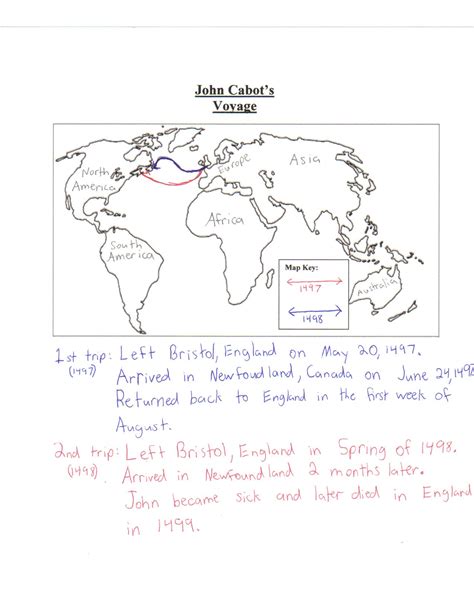 John Cabot's
Voyage
North
America
Europe
Asia
Africa
South
America
Australia
Map Key:
1497
1498
1st trip: Left Bristol, England on May 20, 1497.
(1497) Arrived in Newfoudland, Canada on June 24,
Returned back to England in the first week of
August.
2nd trip: Left Bristol, England in Spring of 1498.
(1498) Arrived in Newfoundland 2 months later.
John became sick and later died in England
in 1499.